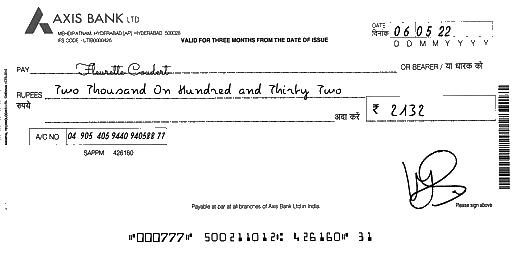 AXIS BANK LTD
MEHDIPATNAM, HYDERABAD [AP] HYDERABAD 500028
IFS CODE - UTIB0000426
VALID FOR THREE MONTHS FROM THE DATE OF ISSUE
DATE
दिनांक 06 05 22
D D M M Y Y Y Y
PAY Fleurette Coudert OR BEARER / या धारक को
RUPEES Two Thousand On Hundred and Thirty Two
रुपये
अदा करें ₹ 2132
A/C NO 04 905 405 9440 940588 77
SAPPM 426160
Payable at par at all branches of Axis Bank Ltd in India.
Please sign above
⑈000777⑈ 500211012⑆ 426160⑈ 31